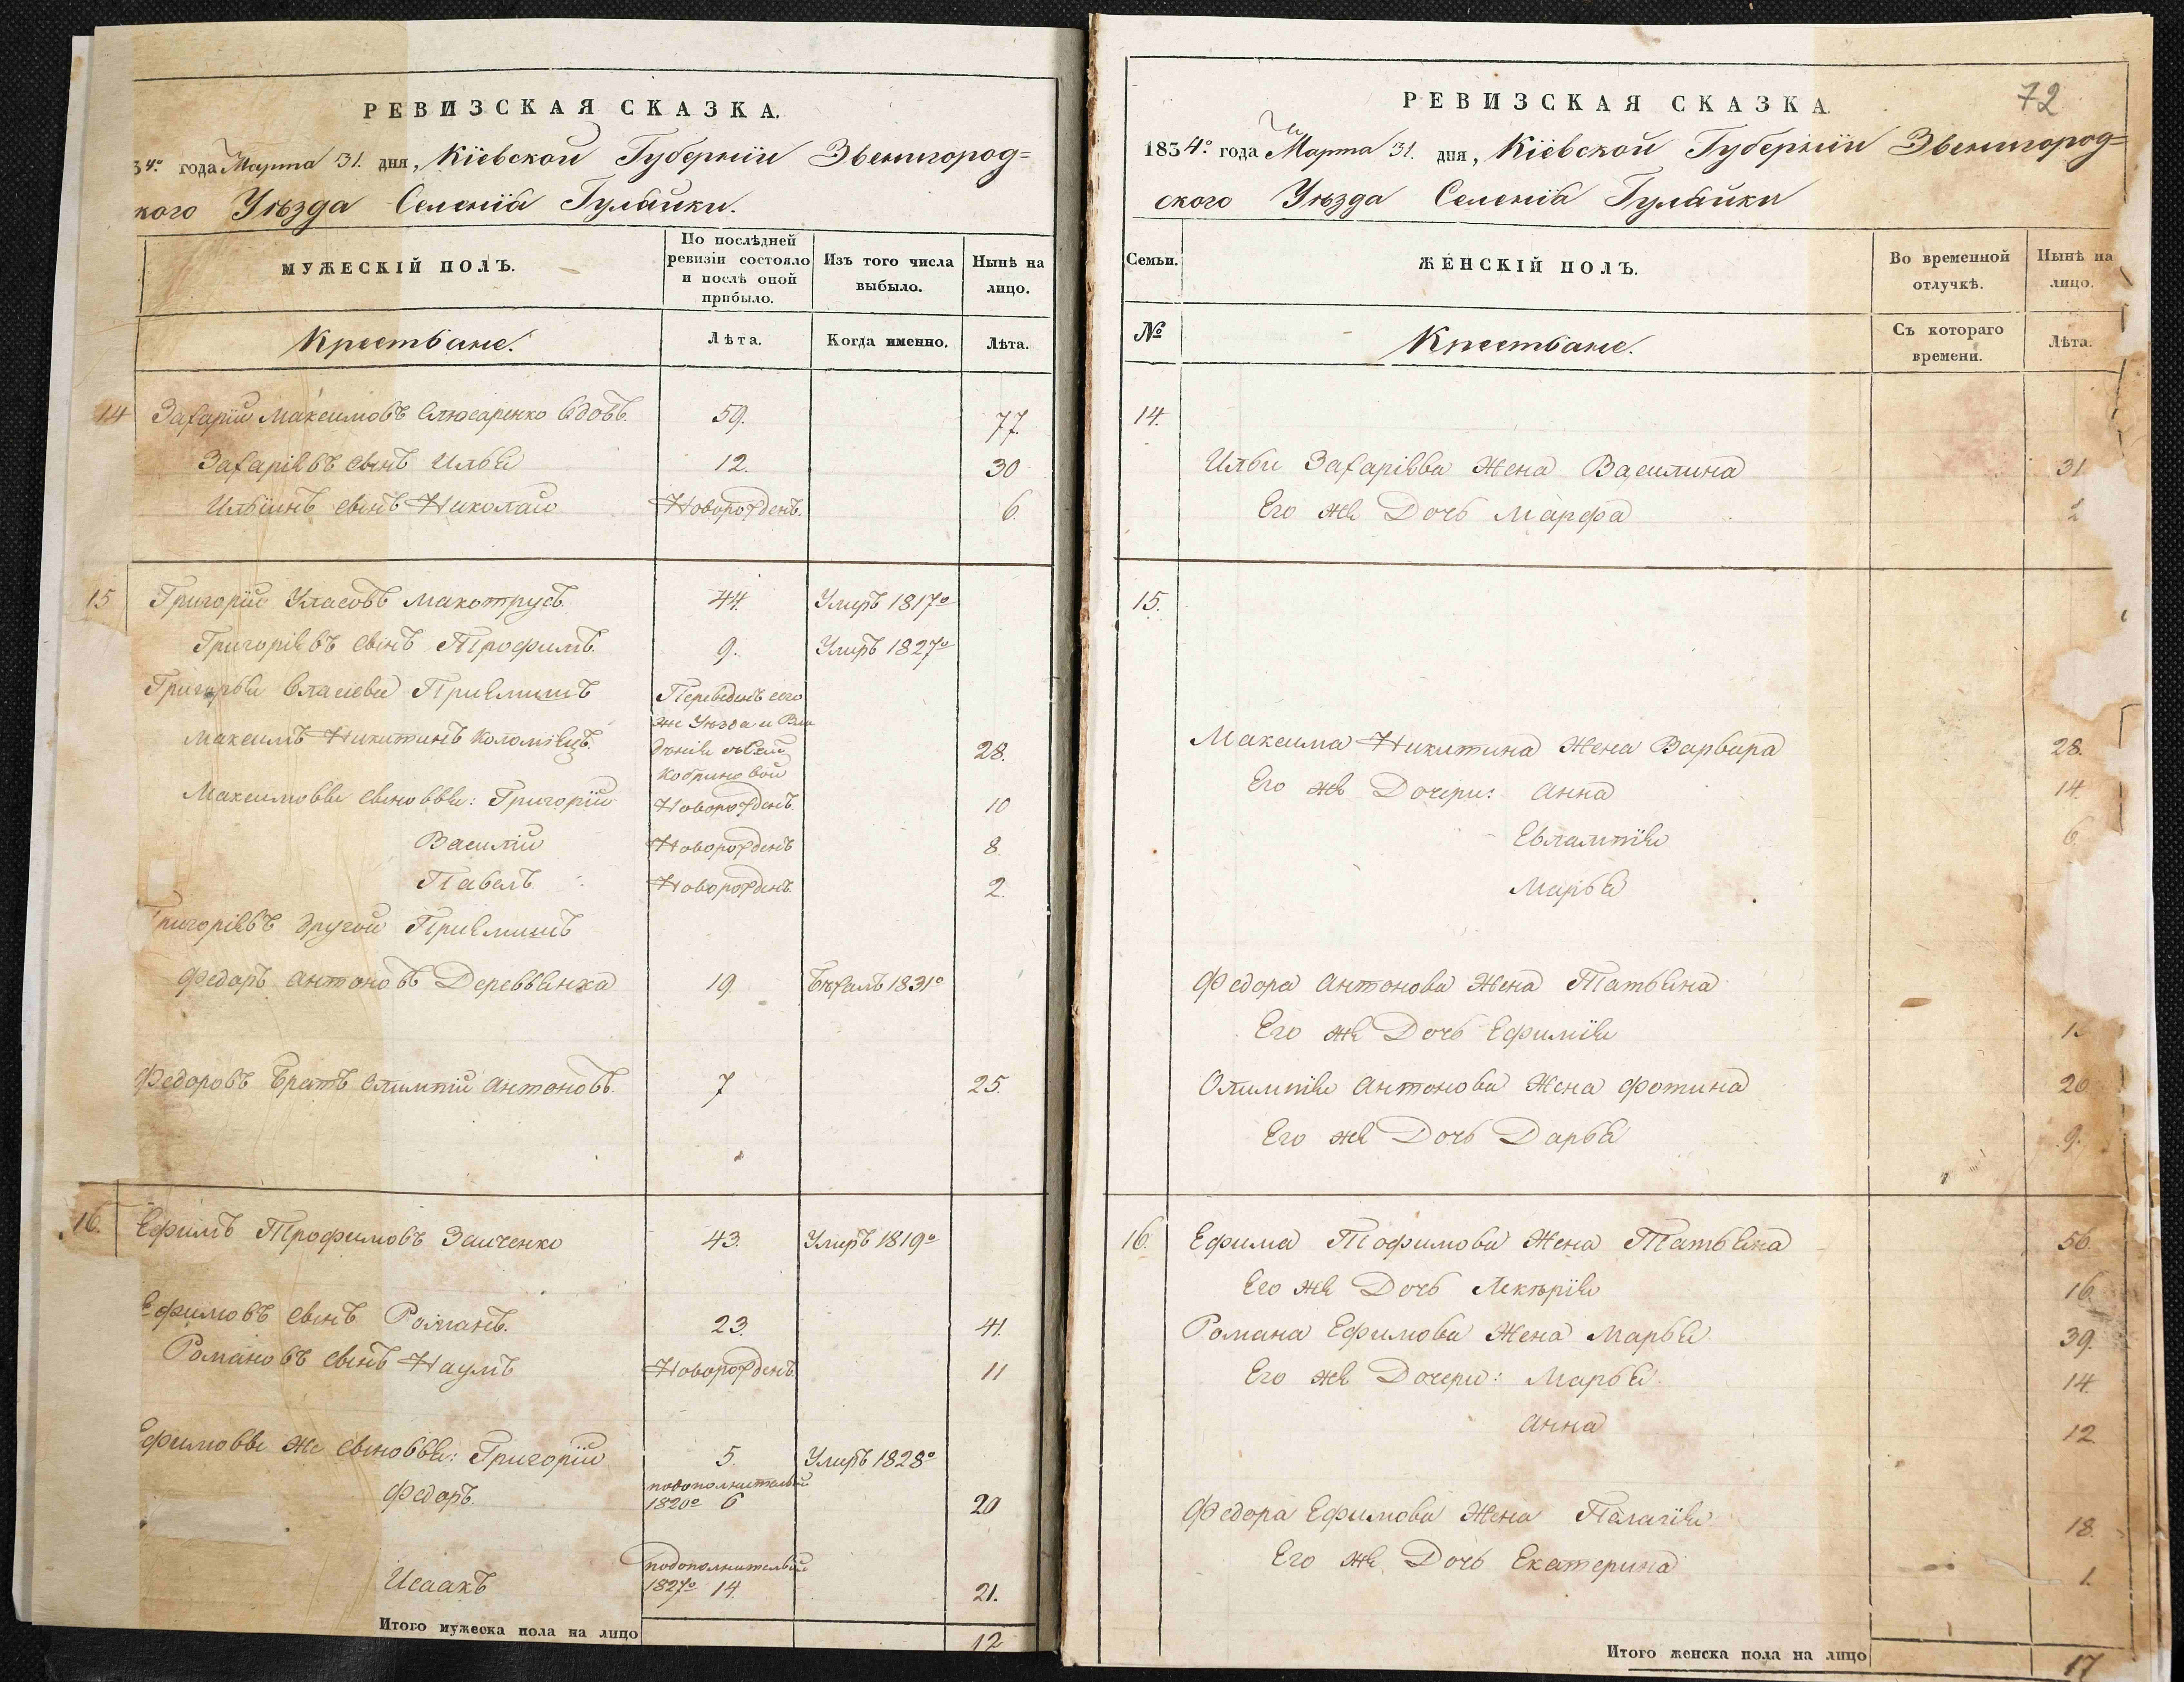 РЕВИЗСКАЯ СКАЗКА.
34го года Марта 31. дня, Кіевской Губерніи Звенигород=
кого Уѣзда Селенія Гулайки.
МУЖЕСКІЙ ПОЛЪ.
По послѣдней ревизіи состояло и послѣ оной прибыло.
Изъ того числа выбыло.
Нынѣ на лицо.
Крестьяне.
Лѣта.
Когда именно.
Лѣта.
14 Захарій Максимовъ Слюсаренко вдовъ. 59. 77.
Захаріевъ сынъ Илья 12. 30
Ильинъ сынъ Николай Новорожденъ. 6.
15 Григорій Уласовъ Макотрусъ. 44. Умеръ 1817го
Григоріевъ сынъ Трофимъ. 9. Умеръ 1827го
Григорья Власіева Пріемышъ Переведенъ сего
же Уѣзда и Вла
Максимъ Никитинъ Коломіецъ. дѣнія 28.
Кобриновой
Максимовы сыновья: Григорій Новорожденъ. 10
Василій Новорожденъ 8.
Павелъ Новорожденъ. 2.
Григоріевъ другой Пріемышъ
Федоръ Антоновъ Деревьянка 19 Бѣжалъ 1831го
Федоровъ Братъ Олимпій Антоновъ. 7 25.
16. Ефимъ Трофимовъ Заиченко 43. Умеръ 1819го
Ефимовъ сынъ Романъ. 23. 41.
Романовъ сынъ Наумъ Новорожденъ. 11
Ефимовы же сыновья: Григорій 5. Умеръ 1828го
Федоръ. подополнительной
1820го 6 20
Исаакъ подополнительной
1827го 14. 21.
Итого мужеска пола на лицо 12
72
РЕВИЗСКАЯ СКАЗКА
1834го года Марта 31. дня, Кіевской Губерніи Звенигород=
ского Уѣзда Селенія Гулайки
Семьи.
ЖЕНСКІЙ ПОЛЪ.
Во временной отлучкѣ.
Нынѣ на лицо.
№
Крестьяне.
Съ котораго времени.
Лѣта.
14.
Ильи Захаріева Жена Василина 31
Его же Дочь Марфа 2
15.
Максима Никитина Жена Варвара 28.
Его же Дочери: Анна 14.
Евлампія 6.
Марья
Федора Антонова Жена Татьяна
Его же Дочь Ефимія
Олимпія Антонова Жена Фотина 26
Его же Дочь Дарья 9.
16. Ефима Тофимова Жена Татьяна 56.
Его же Дочь Лекѣрія 16.
Романа Ефимова Жена Марья. 39.
Его же Дочери: Марья. 14.
Анна 12.
Федора Ефимова Жена Палагія 18.
Его же Дочь Екатерина 1.
Итого женска пола на лицо 17